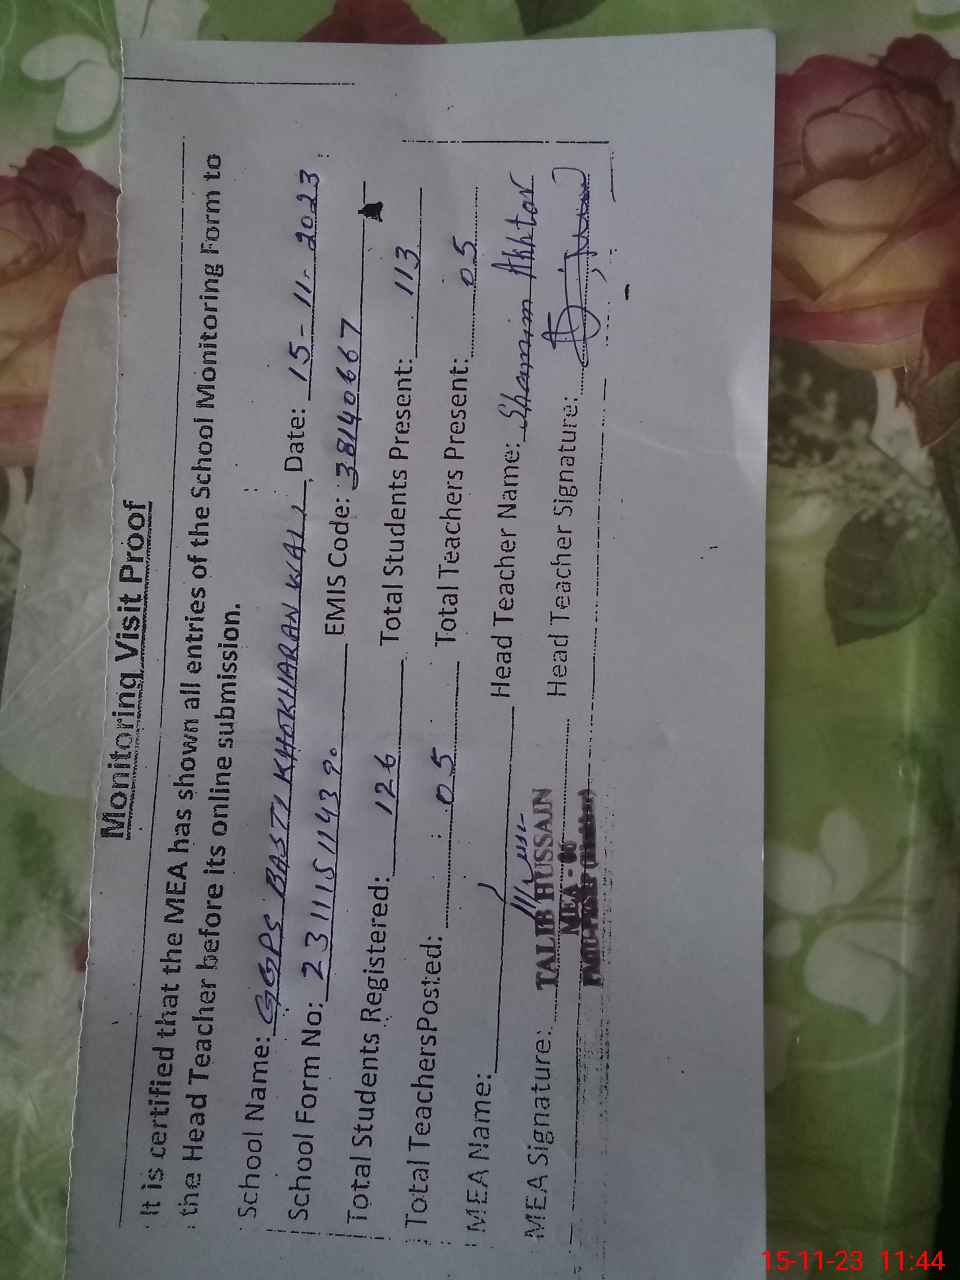 Monitoring Visit Proof
It is certified that the MEA has shown all entries of the School Monitoring Form to
the Head Teacher before its online submission.
School Name: GGPS BASTI KHOKHARAN WALI, Date: 15-11-2023
School Form No: 2311151143 EMIS Code: 38140667
Total Students Registered: 126 Total Students Present: 113
Total Teachers Posted: 05 Total Teachers Present: 05
MEA Name: Head Teacher Name: Shamim Akhtar
MEA Signature: Head Teacher Signature:
TALIB HUSSAN
MEA - 06
15-11-23 11:44